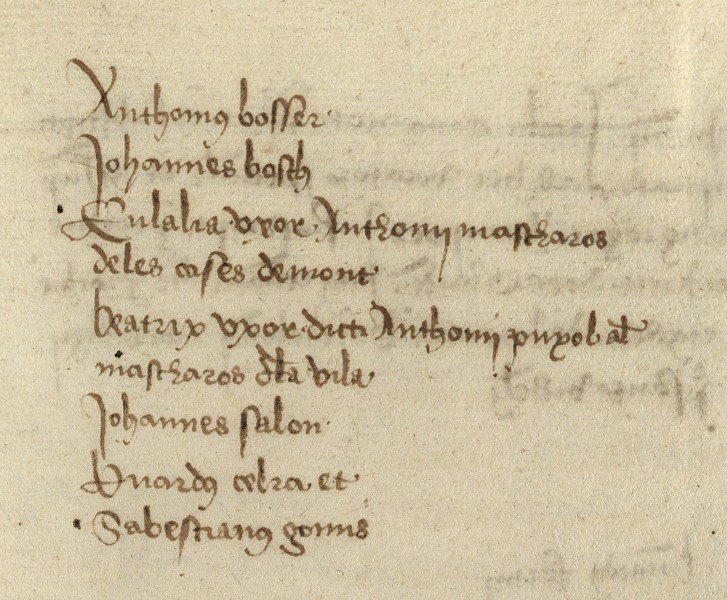 Anthoniꝰ bosser
Johannes bosch
Eulalia uxor Anthonij mascharos
deles cases demont
beatrix uxor dicti Anthonij puxob al̄
mascharos dl̄a vila
Johannes salon
Eduardꝰ celra et
Sabestianꝰ gonus